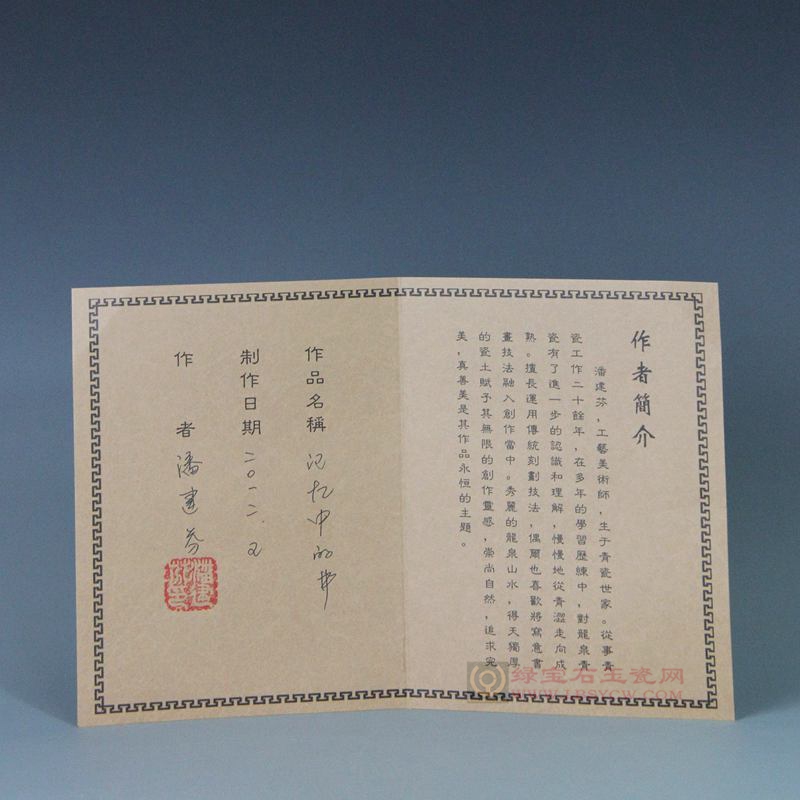 作者簡介
潘建芬，工藝美術師，生于青瓷世家。從事青
瓷工作二十餘年，在多年的學習歷練中，對龍泉青
瓷有了進一步的認識和理解，慢慢地從青澀走向成
熟。擅長運用傳統刻劃技法，偶爾也喜歡將寫意書
畫技法融入創作當中。秀麗的龍泉山水，得天獨厚
的瓷土賦予其無限的創作靈感，崇尚自然，追求完
美，真善美是其作品永恒的主題。
作品名稱 记忆中的
制作日期 二〇一二.
作者 潘建芬
绿宝石玉瓷网